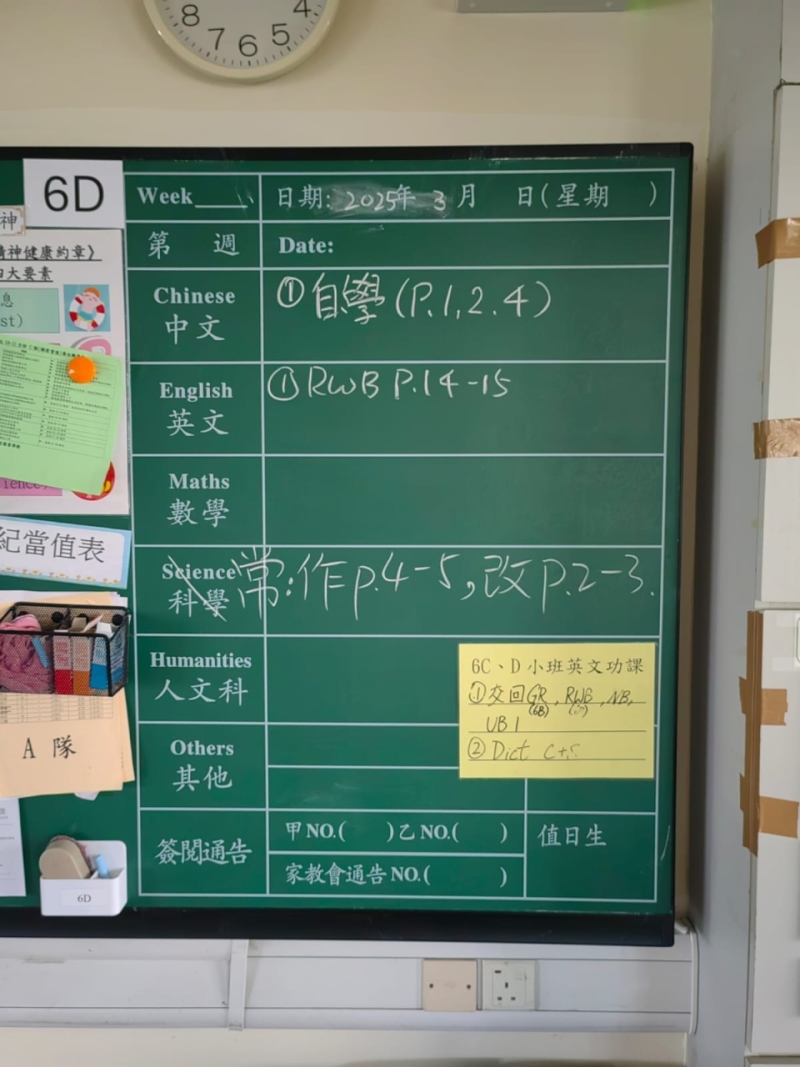 8 7 6 5 4
6D
Week____
日期: 2025年 3月 日(星期 )
神
第 週
Date:
精神健康約章》
四大要素
息
st)
Chinese
中文
①自學(P.1,2.4)
English
英文
①RWB P.14-15
Maths
數學
紀當值表
Science
科學
常:作p.4-5,改p.2-3.
Humanities
人文科
6C、D小班英文功課
①交回GR, RWB, NB,
(GB)
UB1
②Dict C+S
A 隊
Others
其他
簽閱通告
甲NO.( )乙NO.( )
值日生
家教會通告NO.( )
6D